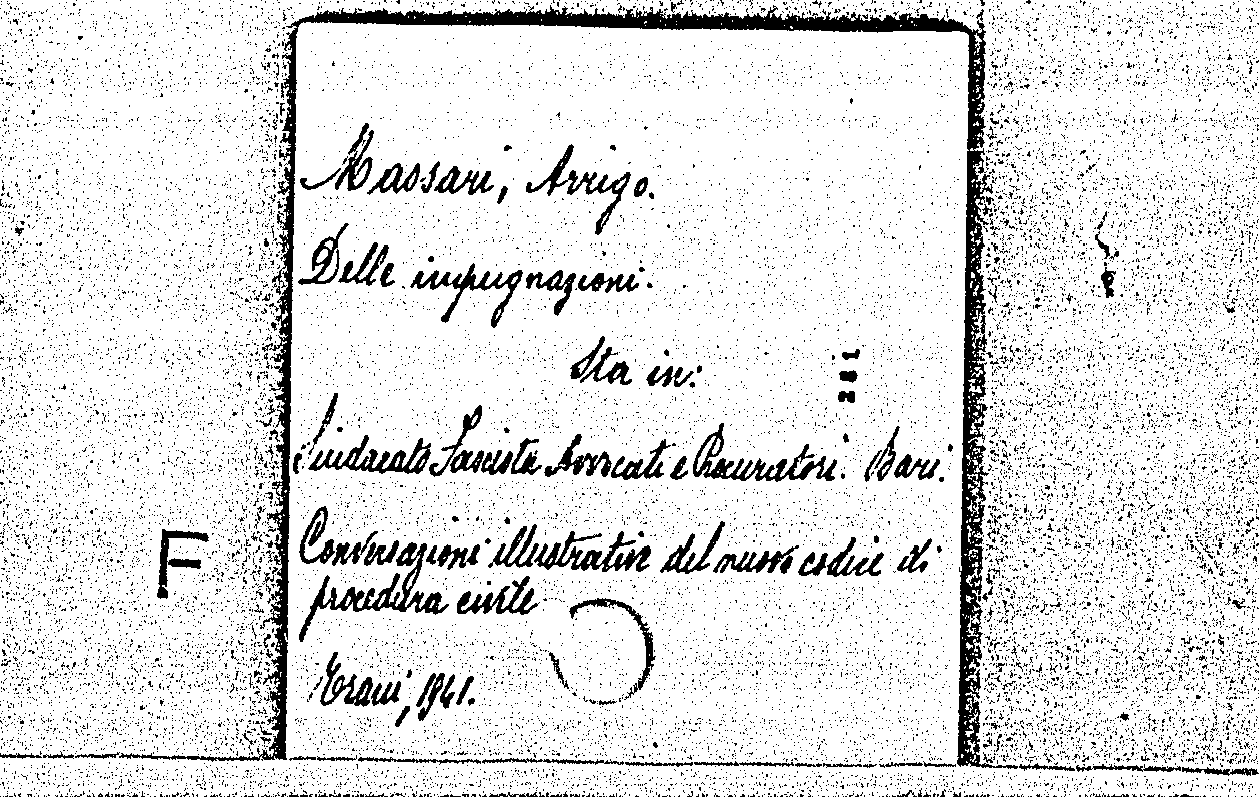 Massari, Arrigo.
Delle impugnazioni.
Sta in:
281
Sindacato Fascista Avvocati e Procuratori. Bari.
Conversazioni illustrative del nuovo codice di
procedura civile
Trani, 1941.
F